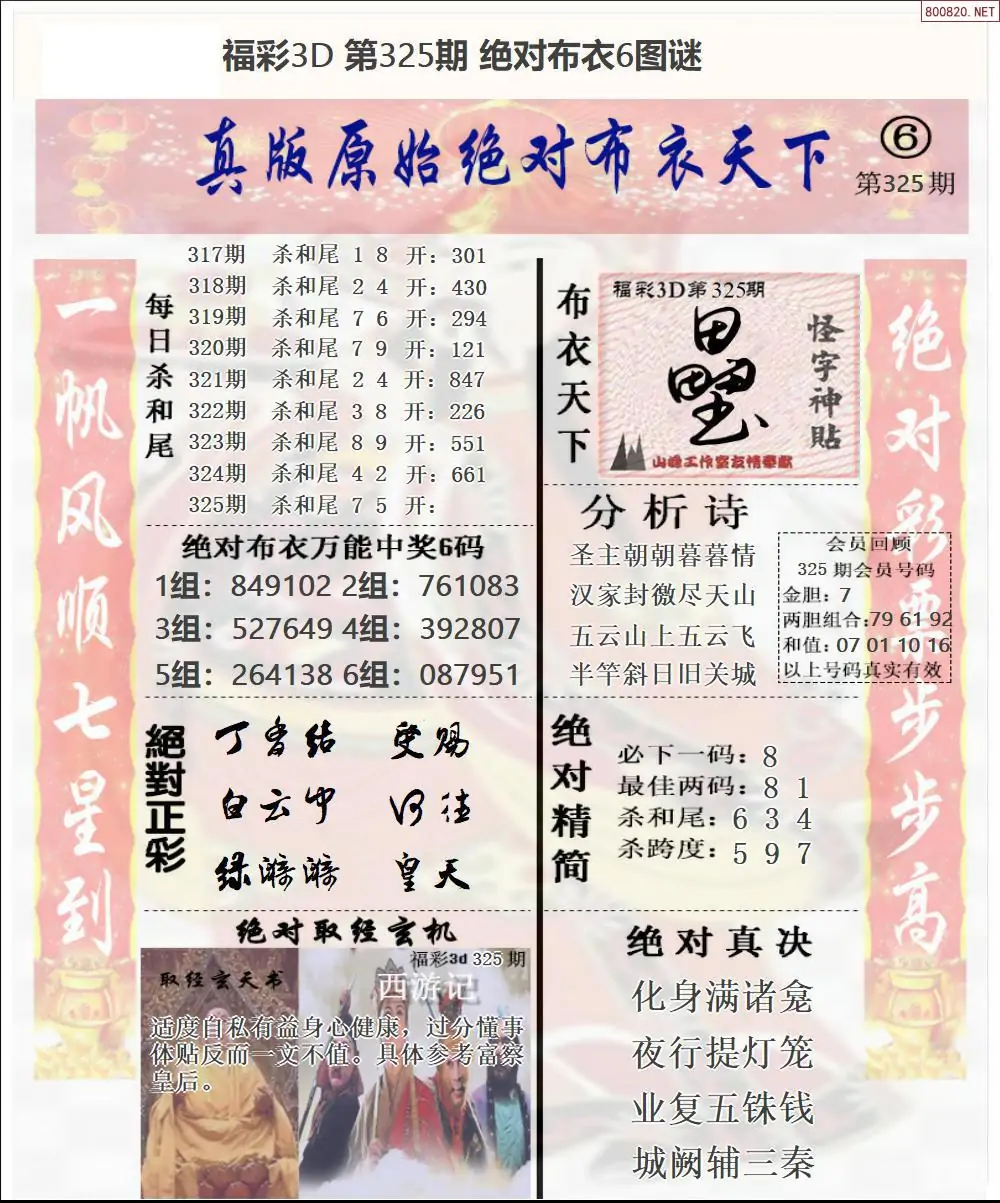 800820.NET
福彩3D 第325期 绝对布衣6图谜
真版原始绝对布衣天下
⑥
第325期
一帆风顺七星到
每日杀和尾
317期 杀和尾 1 8 开：301
318期 杀和尾 2 4 开：430
319期 杀和尾 7 6 开：294
320期 杀和尾 7 9 开：121
321期 杀和尾 2 4 开：847
322期 杀和尾 3 8 开：226
323期 杀和尾 8 9 开：551
324期 杀和尾 4 2 开：661
325期 杀和尾 7 5 开：
绝对布衣万能中奖6码
1组：849102 2组：761083
3组：527649 4组：392807
5组：264138 6组：087951
絕對正彩
丁香结
白云中
绿漪漪
受赐
河往
皇天
绝对取经玄机
福彩3d 325 期
取经玄天书
西游记
适度自私有益身心健康，过分懂事
体贴反而一文不值。具体参考富察
皇后。
布衣天下
福彩3D第325期
怪字神貼
山峰工作室友情奉献
分析诗
圣主朝朝暮暮情
汉家封徼尽天山
五云山上五云飞
半竿斜日旧关城
会员回顾
325 期会员号码
金胆：7
两胆组合:79 61 92
和值：07 01 10 16
以上号码真实有效
绝对精简
必下一码：8
最佳两码：8 1
杀和尾：6 3 4
杀跨度：5 9 7
绝对真决
化身满诸龛
夜行提灯笼
业复五铢钱
城阙辅三秦
绝对彩票步步高